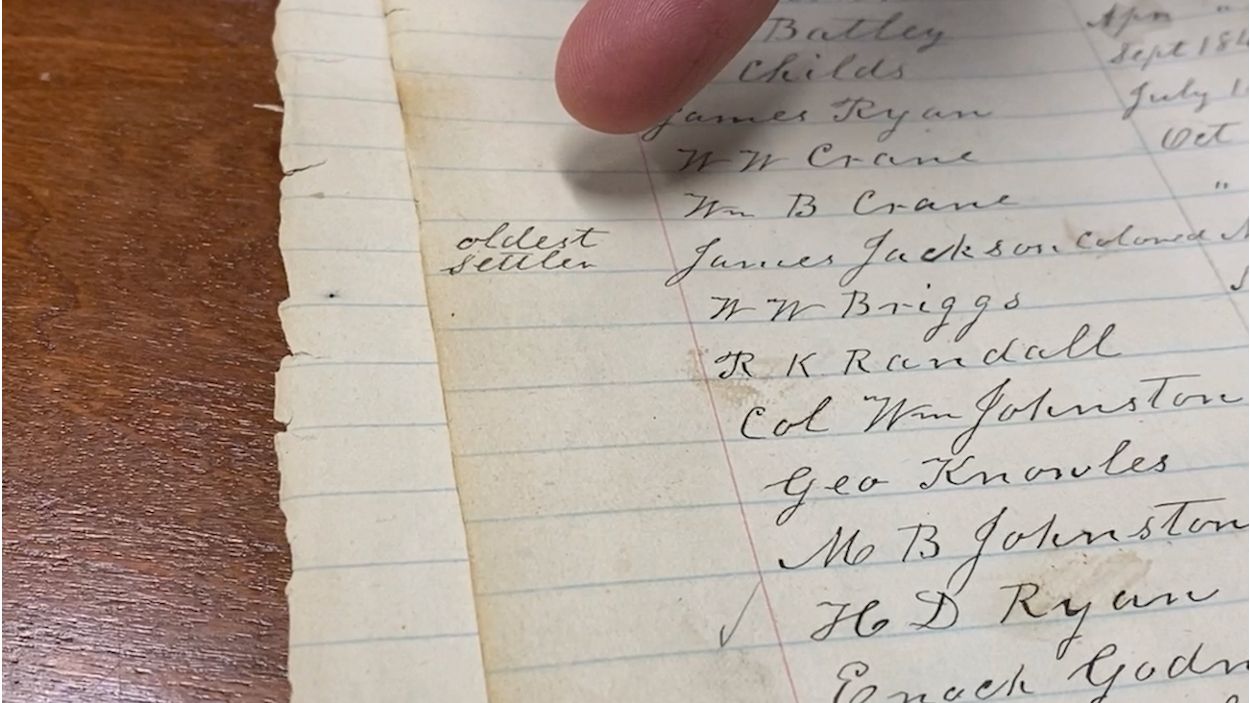 Batley Apr "
Childs Sept 184
James Ryan July 1
W W Crane Oct
Wm B Crane "
oldest
settler James Jackson Colored
W W Briggs
R K Randall
Col Wm Johnston
Geo Knowles
M B Johnston
✓ H D Ryan
Enoch Godn